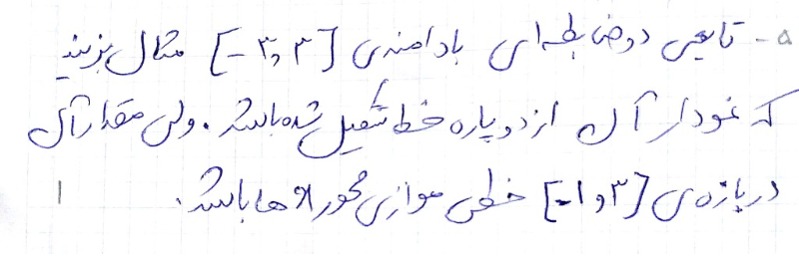 ۵- تابعی دو ضابطه‌ای با دامنه‌ی [۳ و ۳-] مثال بزنید
که نمودار آن از دو پاره خط تشکیل شده باشد. ولی مقدار آن
در بازه‌ی [۳ و ۱-] خطی موازی محور xها باشد. ۱